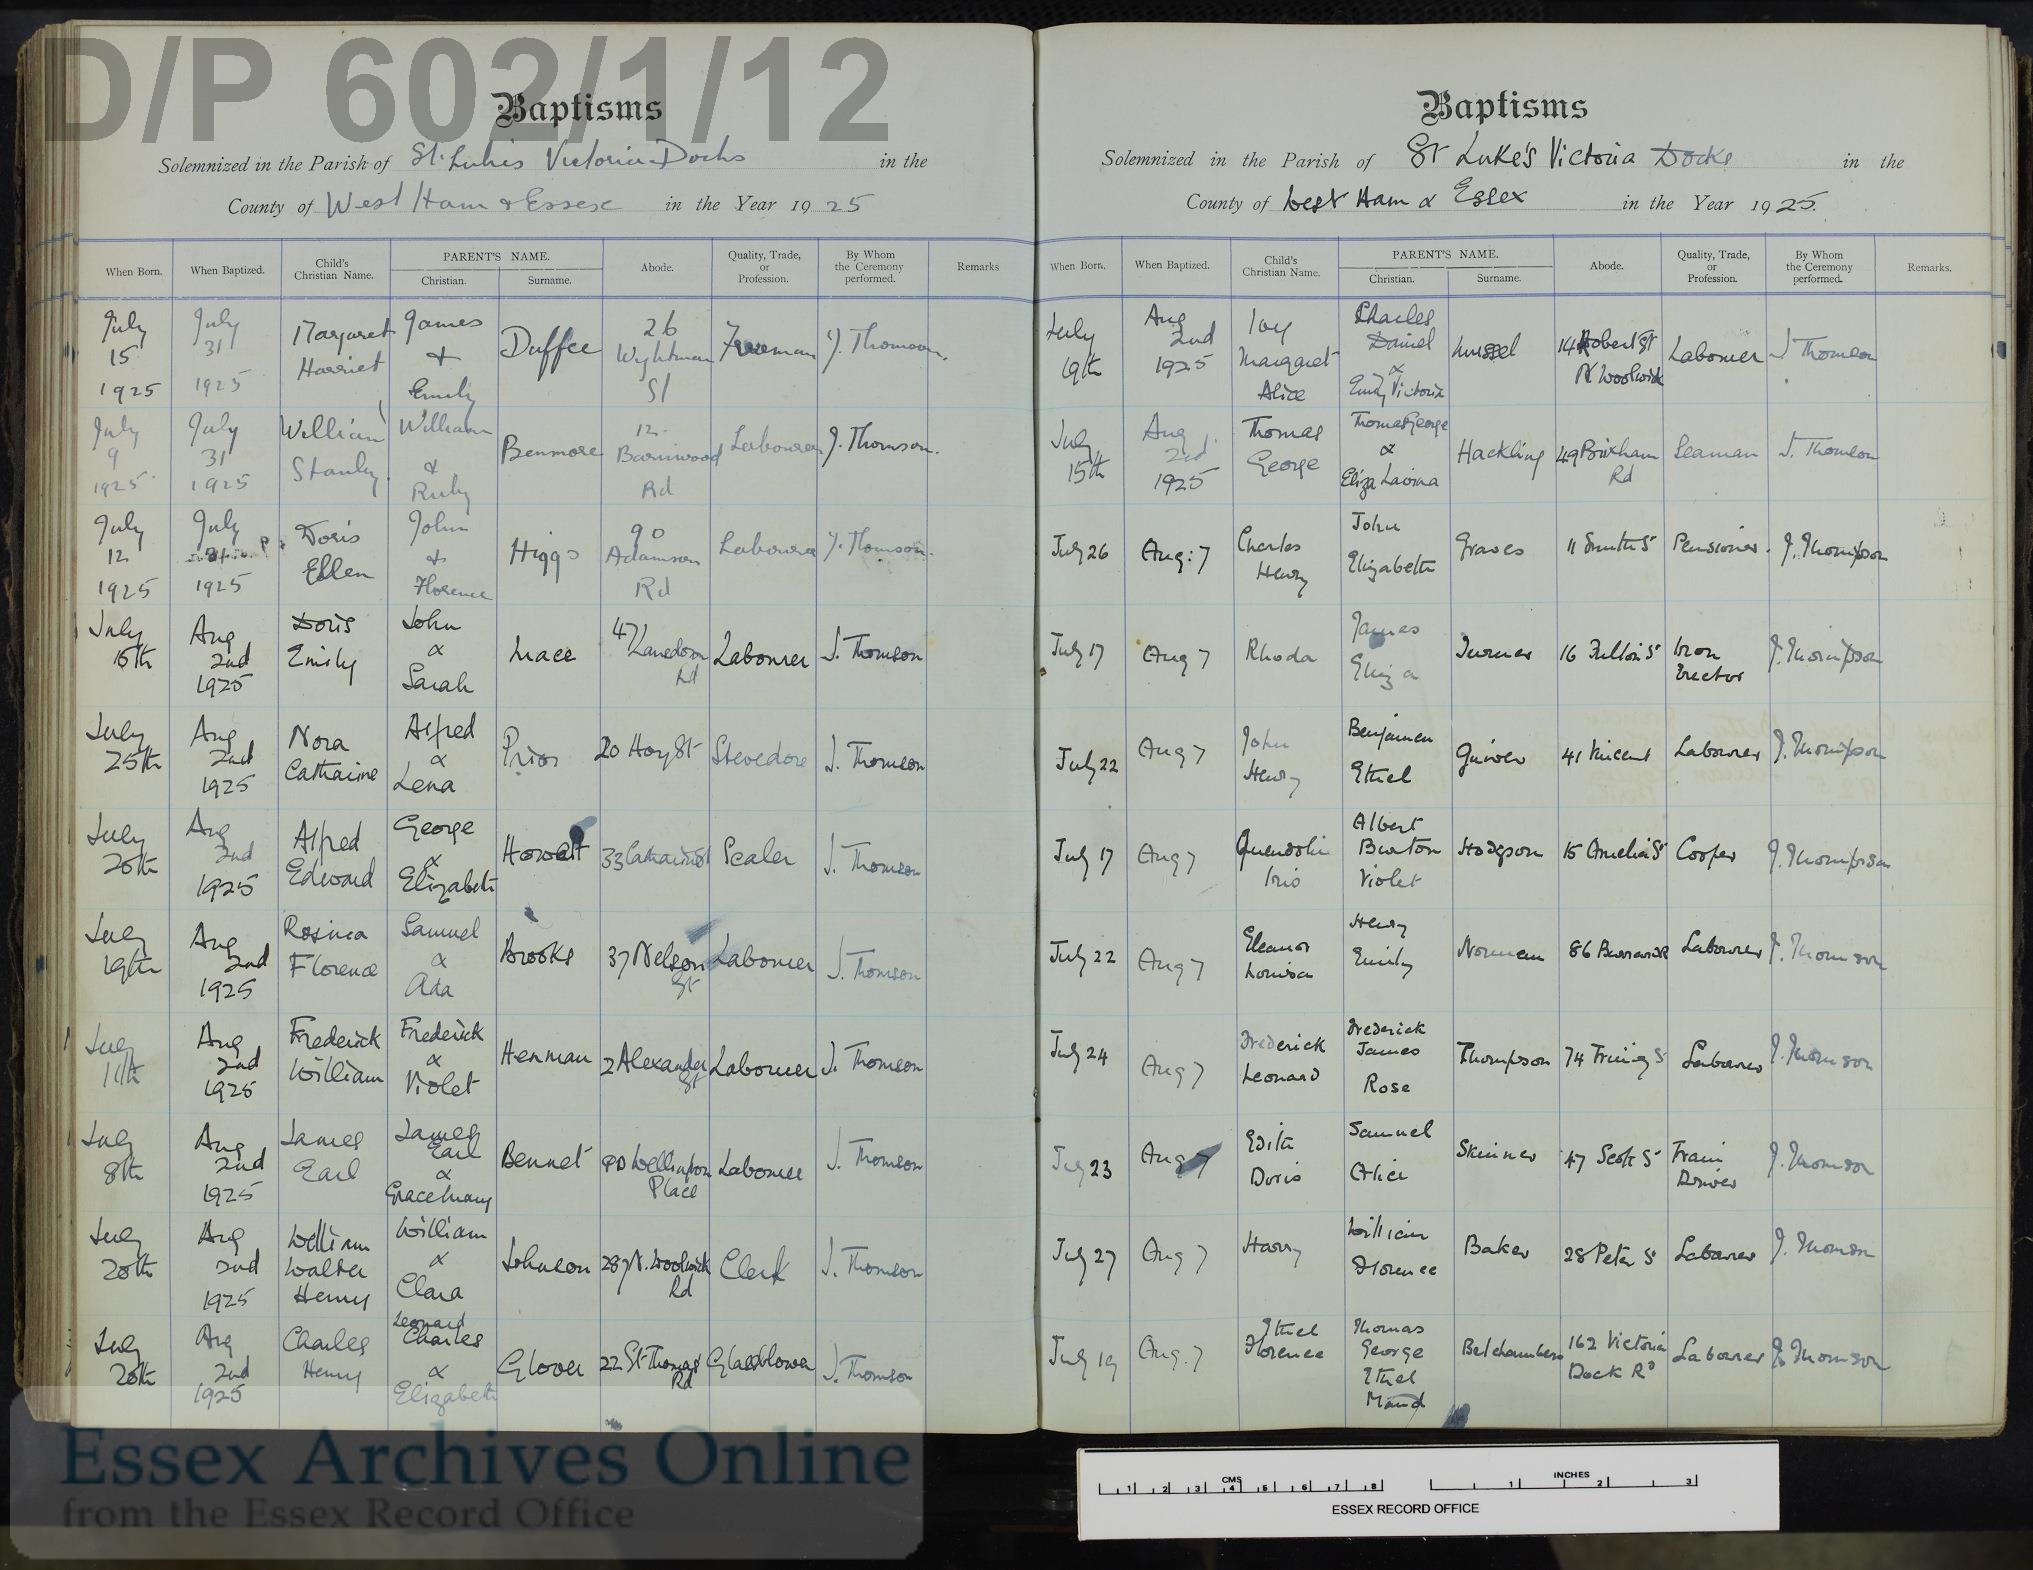 D/P 602/1/12
Baptisms
Solemnized in the Parish of St. Luke's Victoria Docks in the
County of West Ham & Essex in the Year 1925
When Born. When Baptized. Child's Christian Name. PARENT'S NAME. Christian. Surname. Abode. Quality, Trade, or Profession. By Whom the Ceremony performed. Remarks
July 15 1925 July 31 1925 Margaret Harriet James & Emily Duffee 26 Wightman St Fireman J. Thomson.
July 9 1925 July 31 1925 William Stanley William & Ruby Benmore 12 Barnwood Rd Labourer J. Thomson.
July 12 1925 July 31 1925 Doris Ellen John & Florence Higgs 90 Adamson Rd Labourer J. Thomson.
July 15th Aug 2nd 1925 Doris Emily John & Sarah Mace 47 Rd Labourer J. Thomson
July 25th Aug 2nd 1925 Nora Catharine Alfred & Lena Prior 20 Hoy St Stevedore J. Thomson
July 20th Aug 2nd 1925 Alfred Edward George & Elizabeth Howlett 33 Catharine St Scaler J. Thomson
July 19th Aug 2nd 1925 Rosina Florence Samuel & Ada Brooks 37 Nelson St Labourer J. Thomson
July 11th Aug 2nd 1925 Frederick William Frederick & Violet Henman 2 Alexander St Labourer J. Thomson
July 8th Aug 2nd 1925 James Earl James Earl & Grace Mary Bennet Wellington Place Labourer J. Thomson
July 20th Aug 2nd 1925 William Walter Henry William & Clara Johnson 287 N. Woolwich Rd Clerk J. Thomson
July 20th Aug 2nd 1925 Charles Henry Leonard Charles & Elizabeth Glover 22 St Thomas Rd Glassblower J. Thomson
Baptisms
Solemnized in the Parish of St Luke's Victoria Docks in the
County of West Ham & Essex in the Year 1925.
When Born. When Baptized. Child's Christian Name. PARENT'S NAME. Christian. Surname. Abode. Quality, Trade, or Profession. By Whom the Ceremony performed. Remarks.
July 19th Aug 2nd 1925 Ivy Margaret Alice Charles Daniel & Emily Victoria Mussel 14 Robert St N Woolwich Labourer J Thomson
July 15th Aug 2nd 1925 Thomas George Thomas George & Eliza Lavina Hackling 49 Brixham Rd Seaman J. Thomson
July 26 Aug: 7 Charles Henry John Elizabeth Graves 11 Smith St Pensioner. J. Thompson
July 17 Aug 7 Rhoda James Eliza Turner 16 Fulton St Iron Erector J. Thompson
July 22 Aug 7 John Henry Benjamen Ethel Guiver 41 Vincent Labourer J. Thompson
July 17 Aug 7 Iris Albert Burton Violet Hodgson 15 Amelia St Cooper J. Thompson
July 22 Aug 7 Eleanor Louisa Henry Emily Norman 86 Labourer J. Thomson
July 24 Aug 7 Frederick Leonard Frederick James Rose Thompson 74 St Labourer J. Thomson
July 23 Aug 7 Edith Doris Samuel Alice Skinner 47 Scott St Train Driver J. Thomson
July 27 Aug 7 Harry William Florence Baker 28 Peter St Labourer J. Thomson
July 19 Aug. 7 Ethel Florence Thomas George Ethel Maud Belchambers 162 Victoria Dock Rd Labourer J. Thomson
Essex Archives Online
from the Essex Record Office
CMS 1 2 3 4 5 6 7 8
INCHES 1 2 3
ESSEX RECORD OFFICE